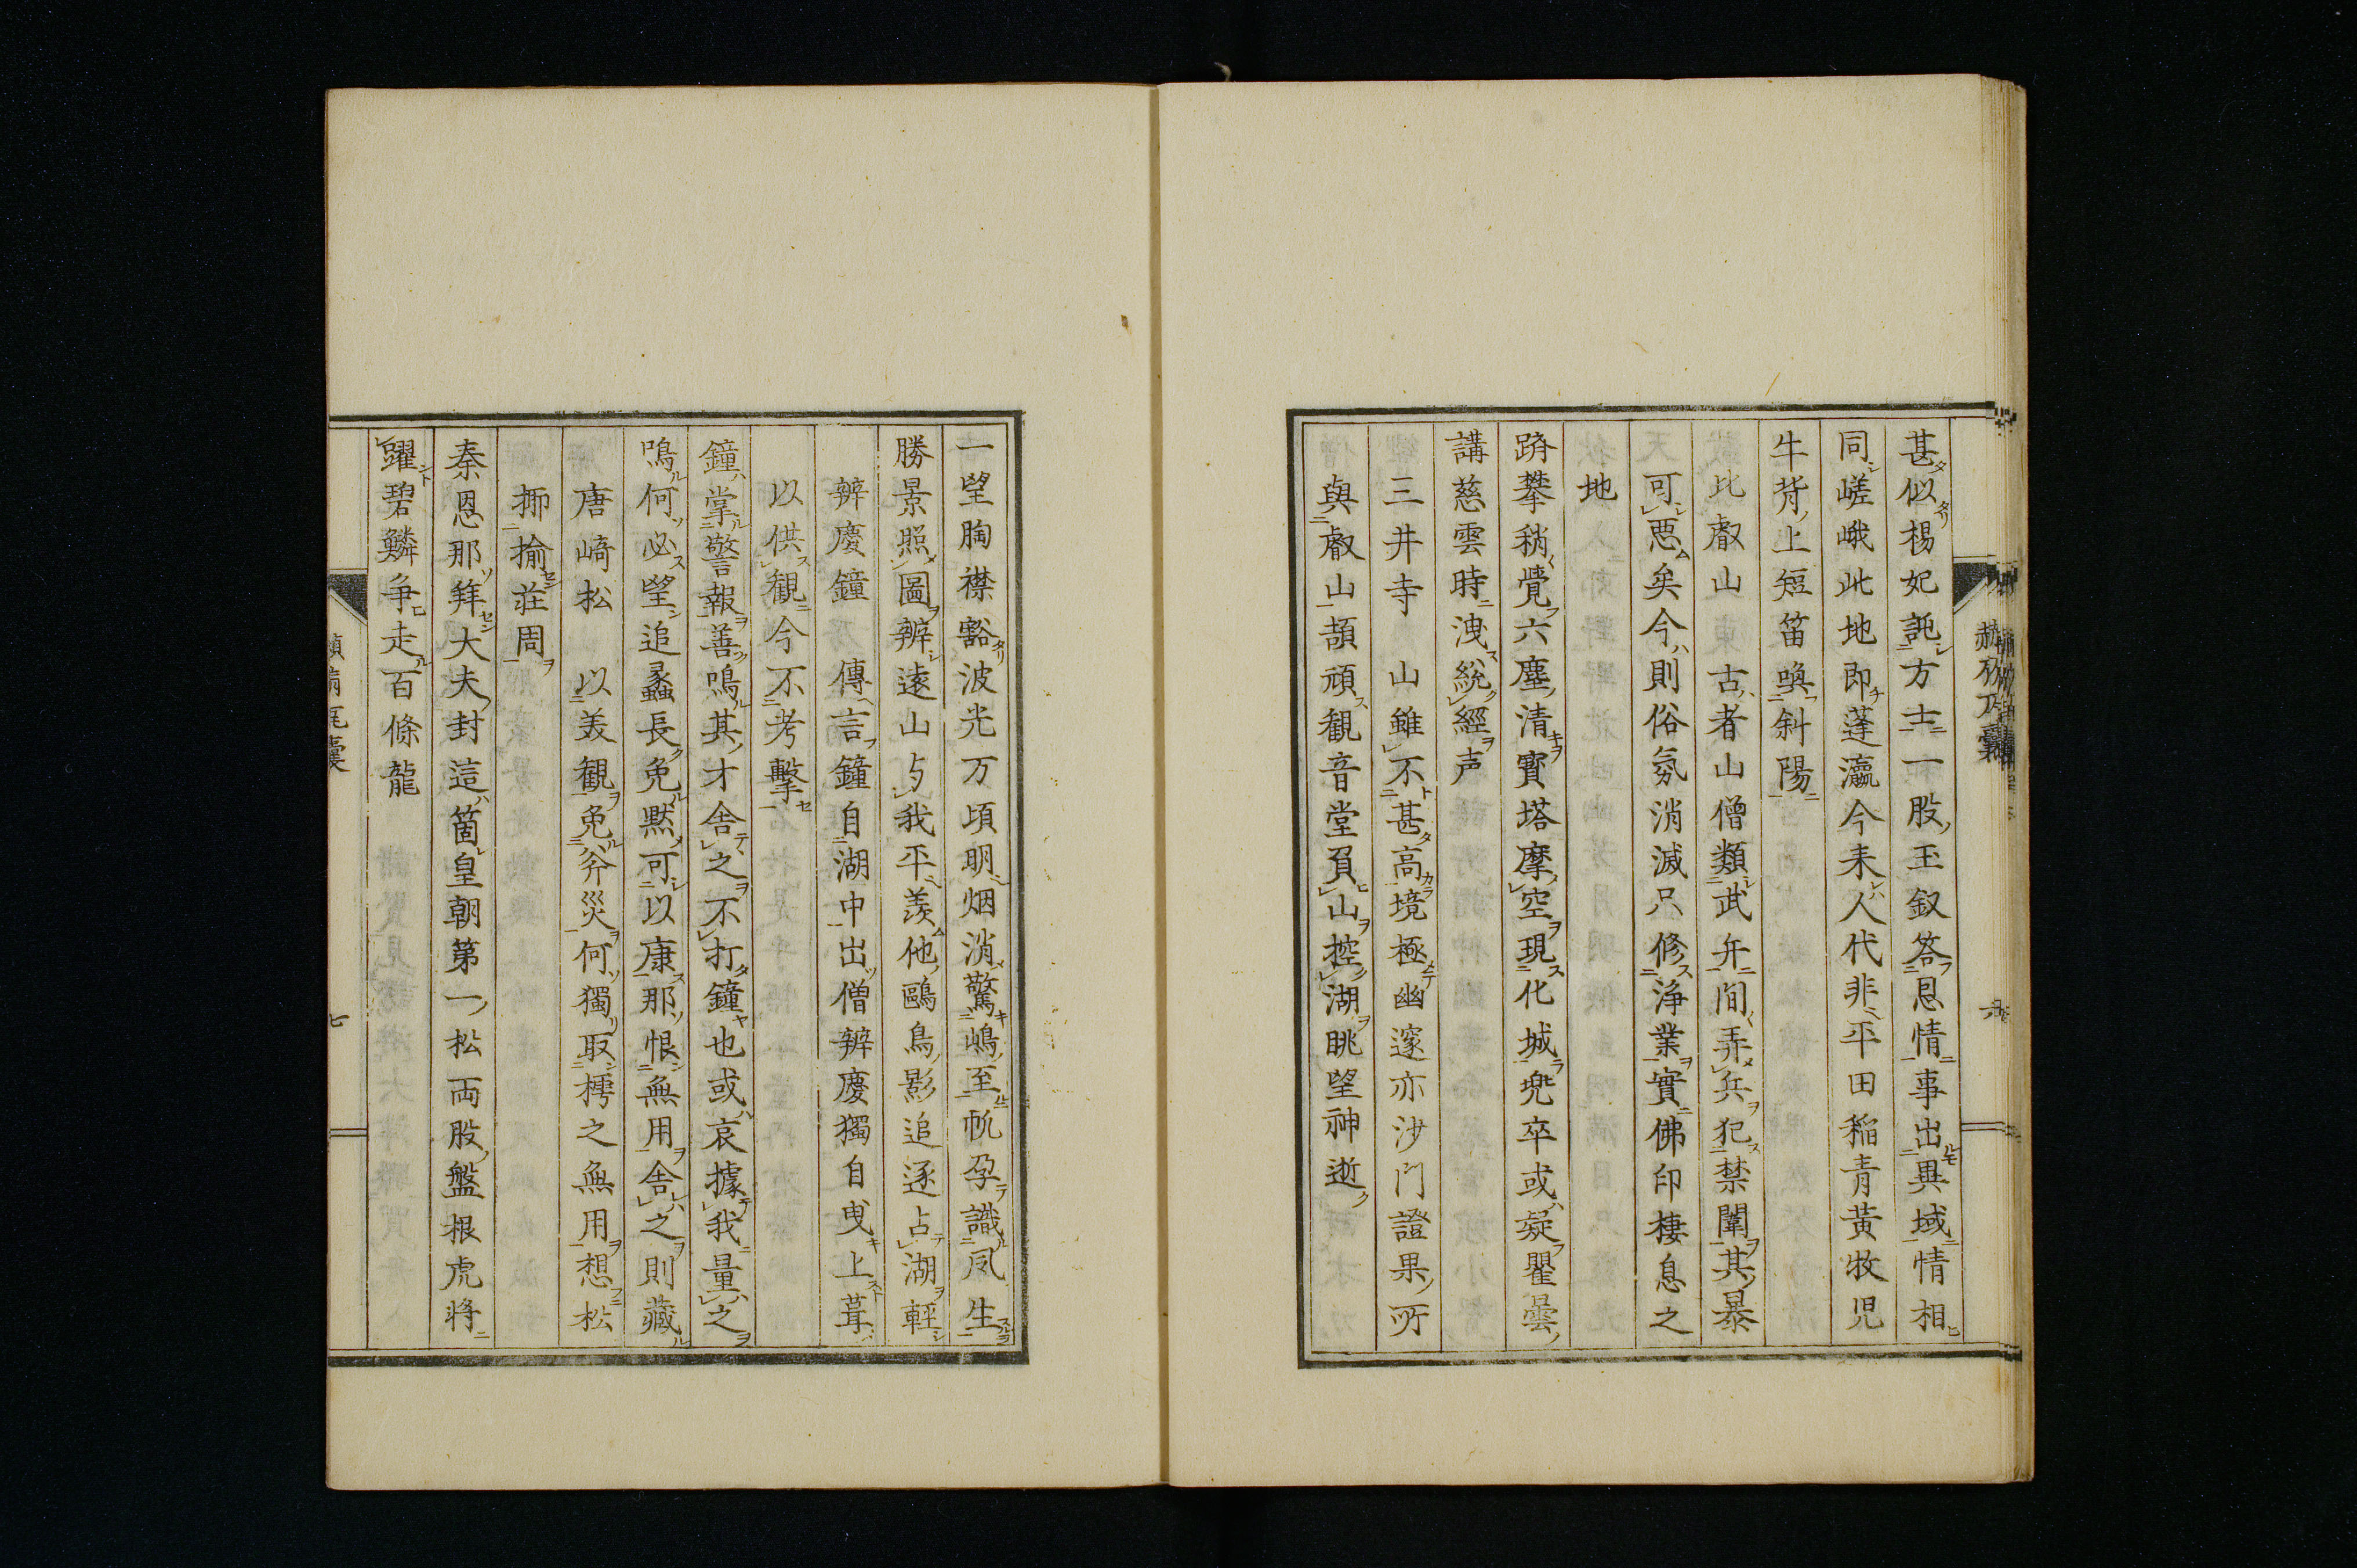 甚似楊妃託方士一股玉釵答恩情事出異域情相
同嵯峨此地即蓬瀛今来人代非平田稲青黄牧児
牛背上短笛喚斜陽
比叡山　古者山僧類武弁間弄兵犯禁闈其暴
可悪矣今則俗氛消滅只修浄業實佛印棲息之
地
躋攀稍覺六塵清寳塔摩空現化城兜卒或疑瞿曇
講慈雲時洩綂經声
三井寺　山雖不甚高境極幽邃亦沙門證果所
與叡山頡頏観音堂負山控湖眺望神逝
一望胸襟豁波光万頃明烟消驚嶋至帆孕識風生
勝景照圖辨遠山与我平羨他鷗鳥影追逐占湖軽
辨慶鐘　傳言鐘自湖中出僧辨慶獨自曵上葺
以供観今不考擊
鐘掌警報善鳴其才舎之不打鐘也或哀據我量之
鳴何必望追蠡長免黙可以康那恨無用舎之則藏
唐崎松　以美観免斧災何獨取樗之無用想松
揶揄莊周
秦恩那拜大夫封這箇皇朝第一松両股盤根虎将
躍碧鱗争走百條龍
七